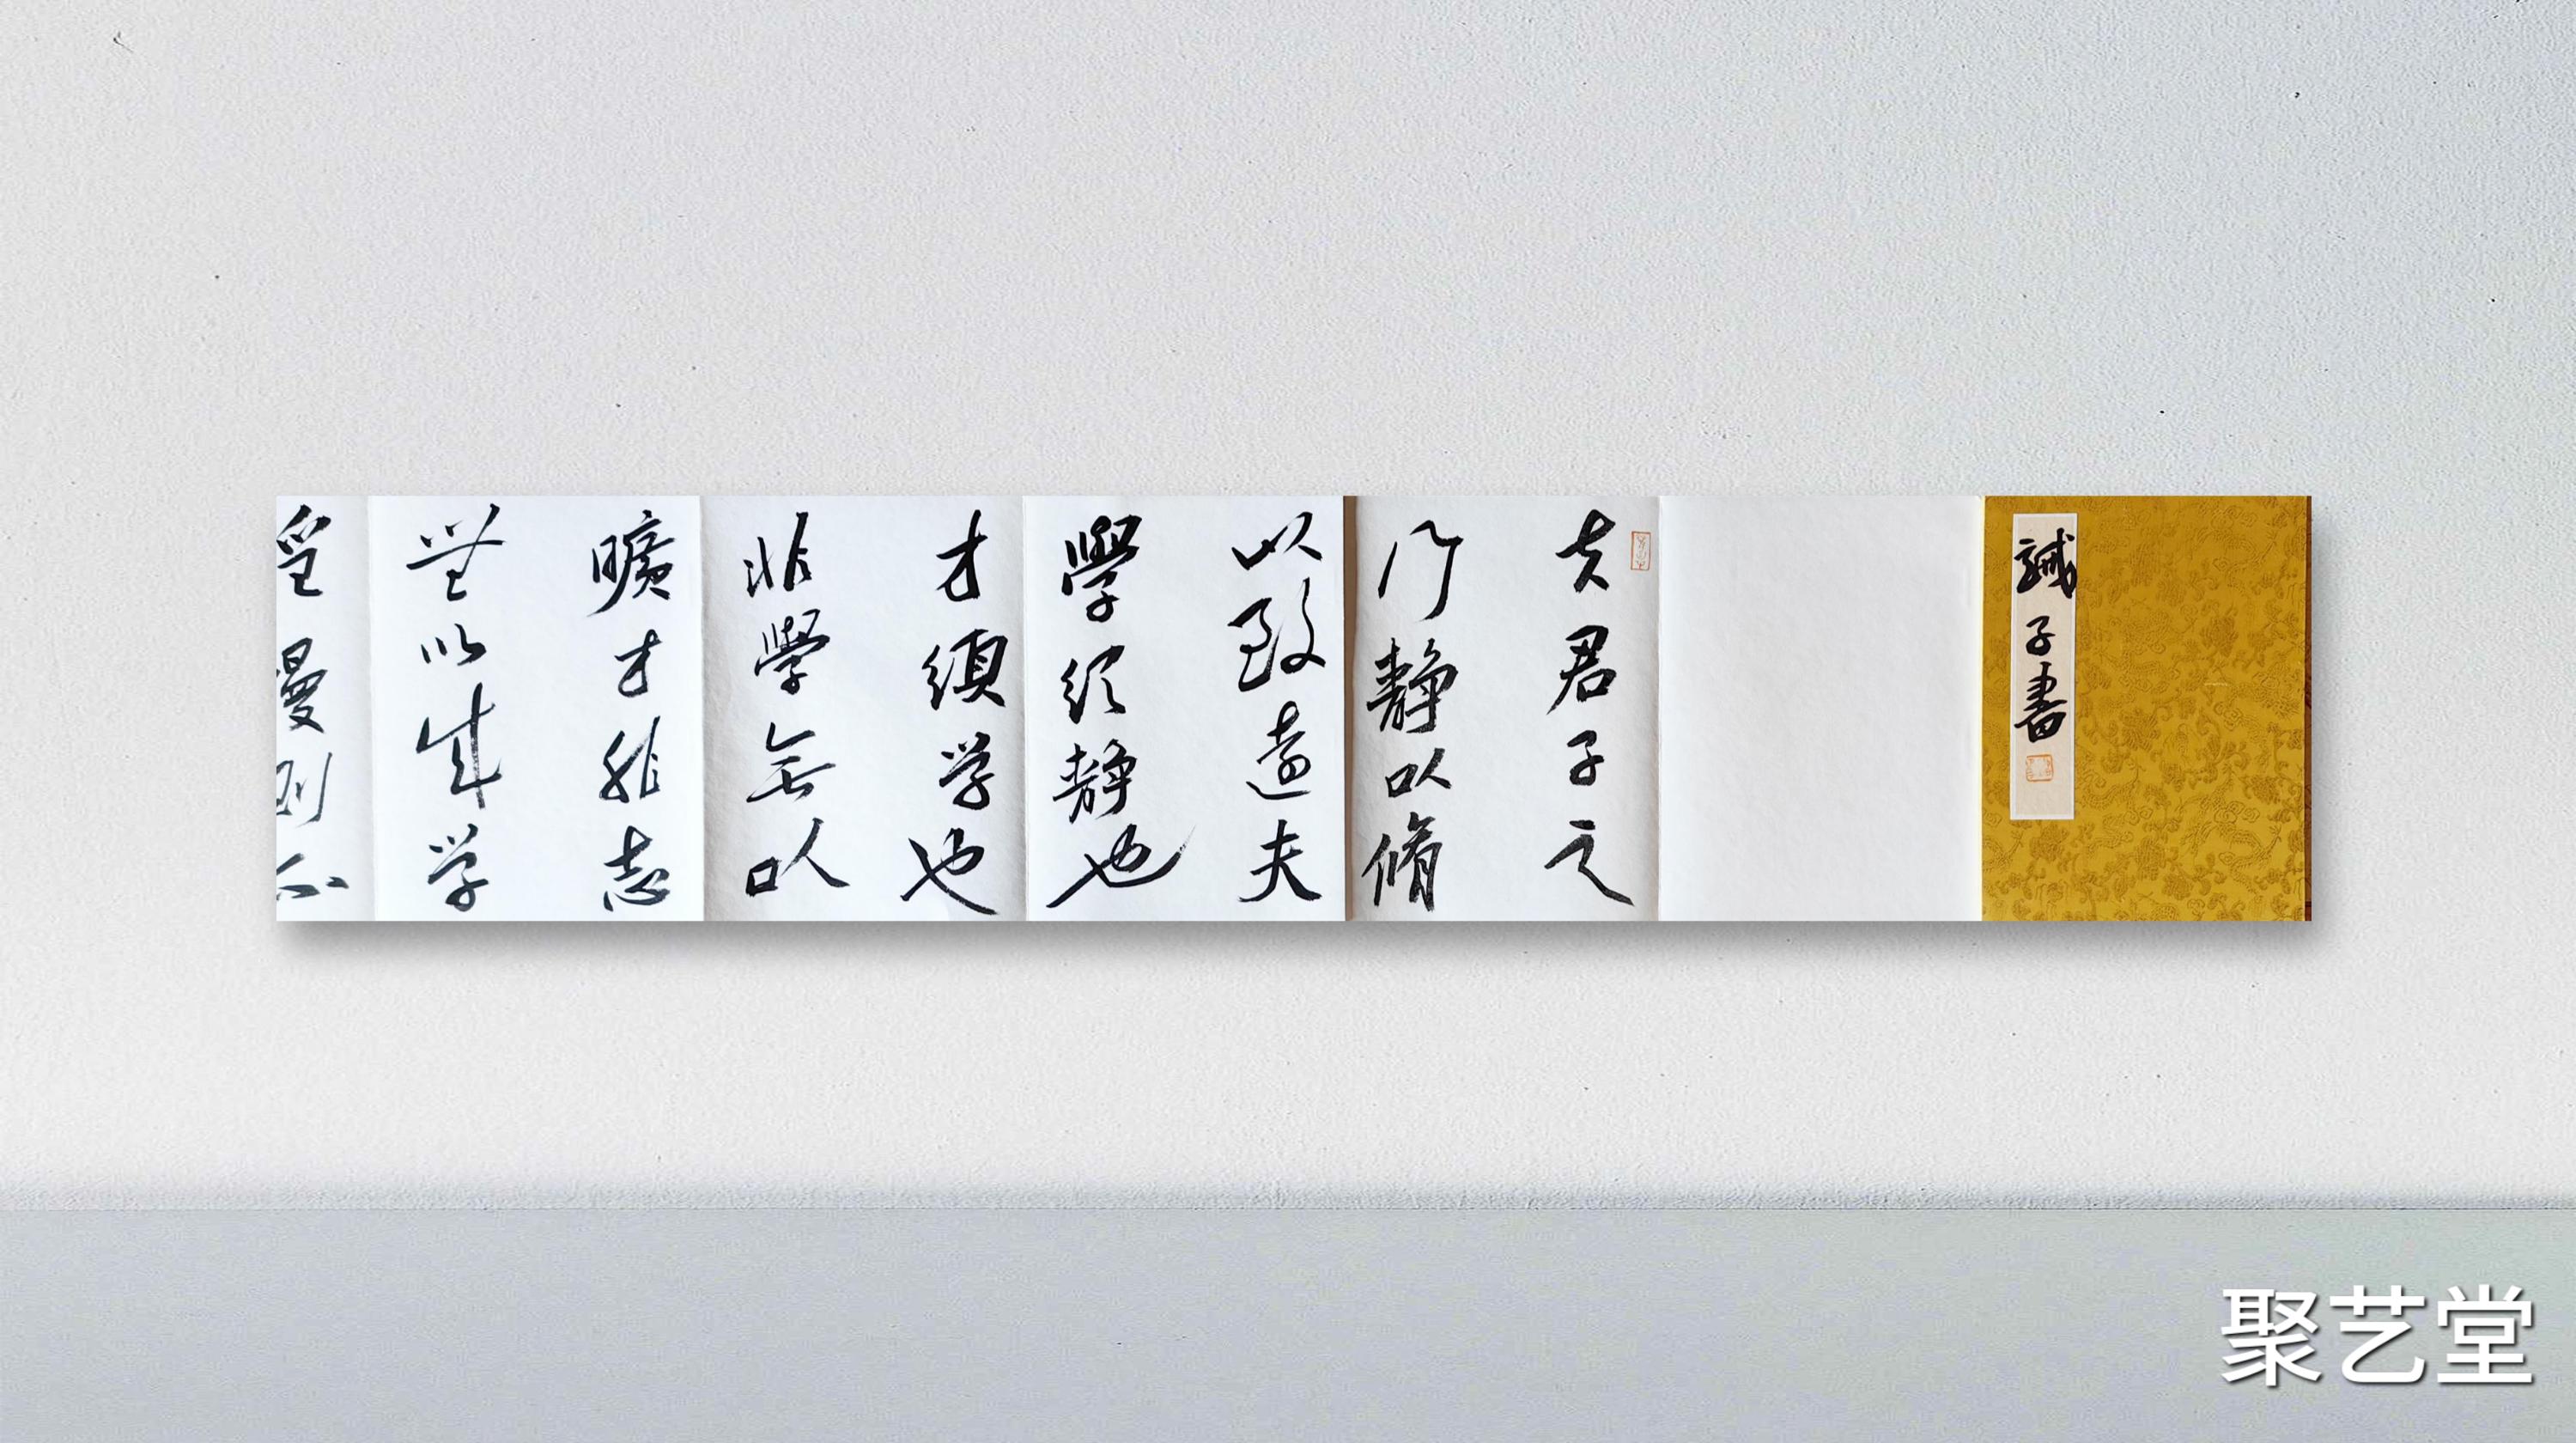 誡子書
夫君子之
行静以脩
以致遠夫
學須静也
才須学也
非學無以
曠才非志
無以成学
淫慢則不
聚艺堂